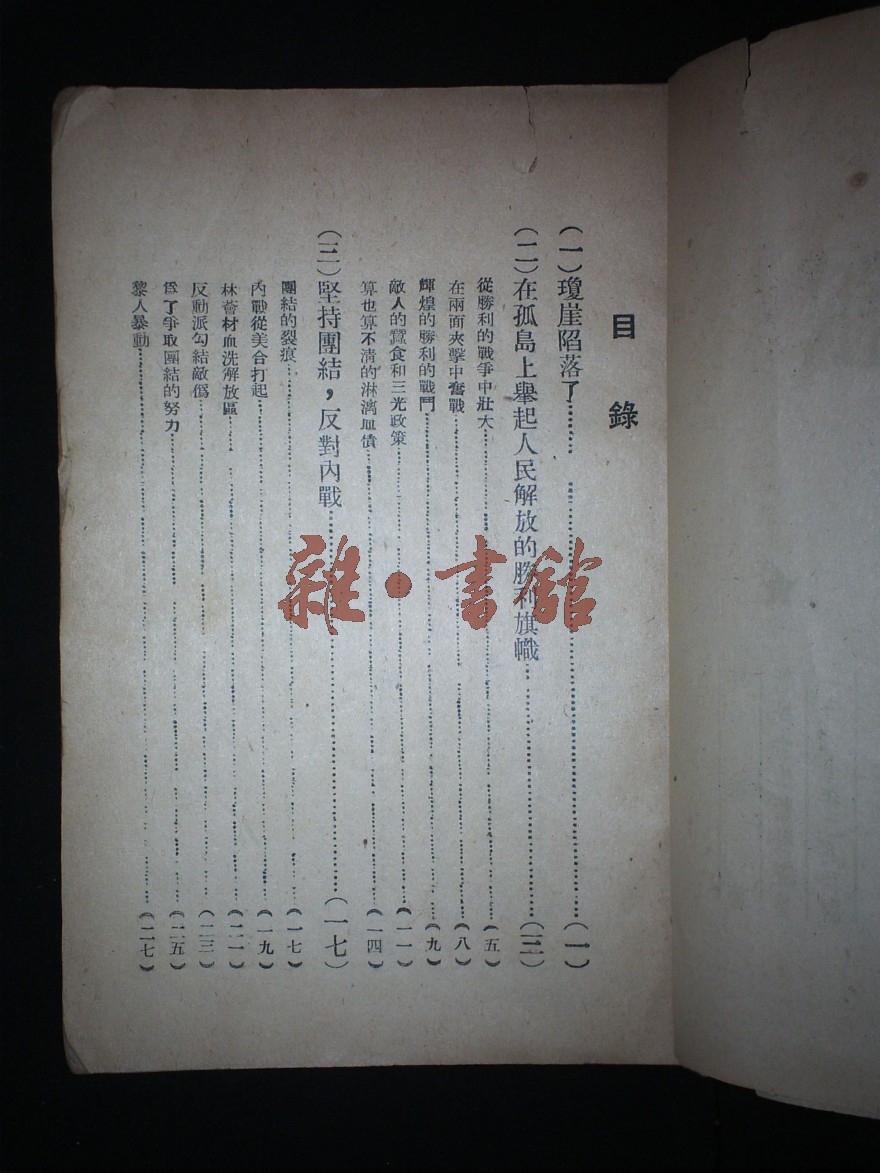 目錄
(一)瓊崖陷落了……(一)
(二)在孤島上舉起人民解放的勝利旗幟……(三)
從勝利的戰爭中壯大……(五)
在兩面夾擊中奮戰……(八)
輝煌的勝利的戰鬥……(九)
敵人的蠶食和三光政策……(一一)
算也算不清的淋漓血債……(一四)
(三)堅持團結，反對內戰……(一七)
團結的裂痕……(一七)
內戰從美合打起……(一九)
林薈材血洗解放區……(二一)
反動派勾結敵僞……(二三)
爲了爭取團結的努力……(二五)
黎人暴動……(二七)
雜·書館